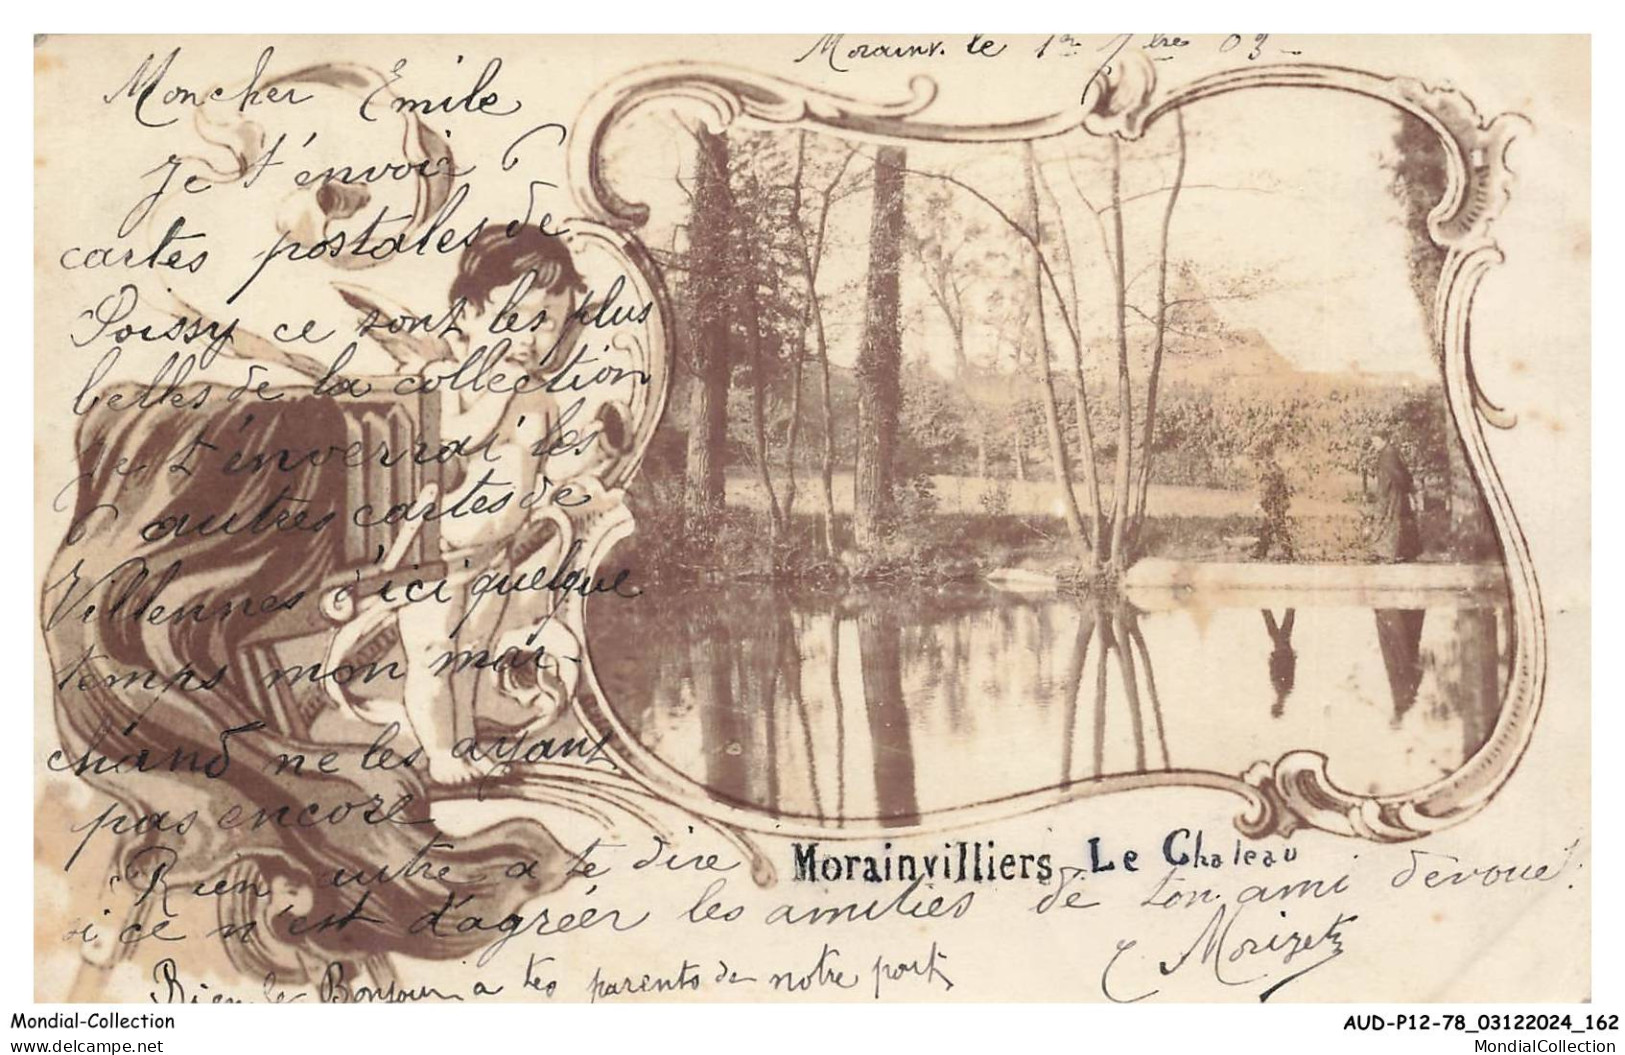 Morainv. le 1er 7bre 03
Moncher Emile
Je t'envoie 6
cartes postales de
Poissy ce sont les plus
belles de la collection
Je t'enverrai les
6 autres cartes de
Villennes d'ici quelque
temps mon mar-
chand ne les ayant
pas encore
Rien autre a te dire
si ce n'est d'agréer les amitiés de ton ami dévoué
Morainvilliers Le Chateau
C Morizet
Rien le Bonjour a tes parents de notre part
Mondial-Collection
www.delcampe.net
AUD-P12-78_03122024_162
MondialCollection